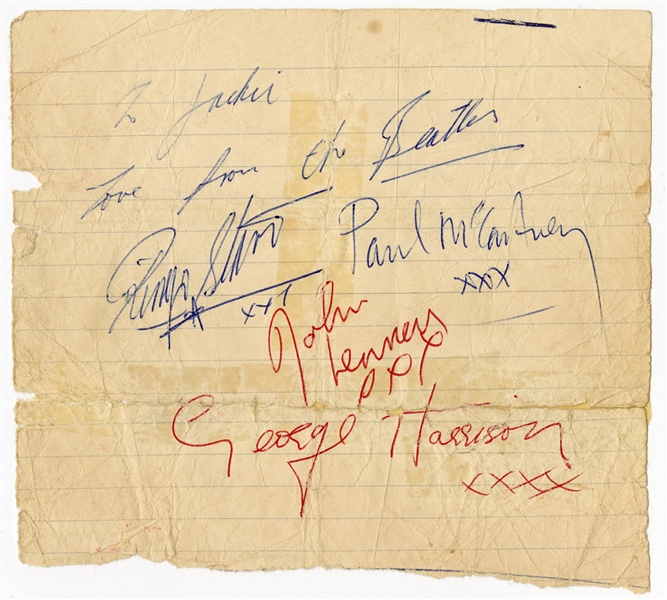 To Jackie
Love from the Beatles
Ringo Starr Paul McCartney
xxx xxx
John
Lennon
xxx
George Harrison
xxxx